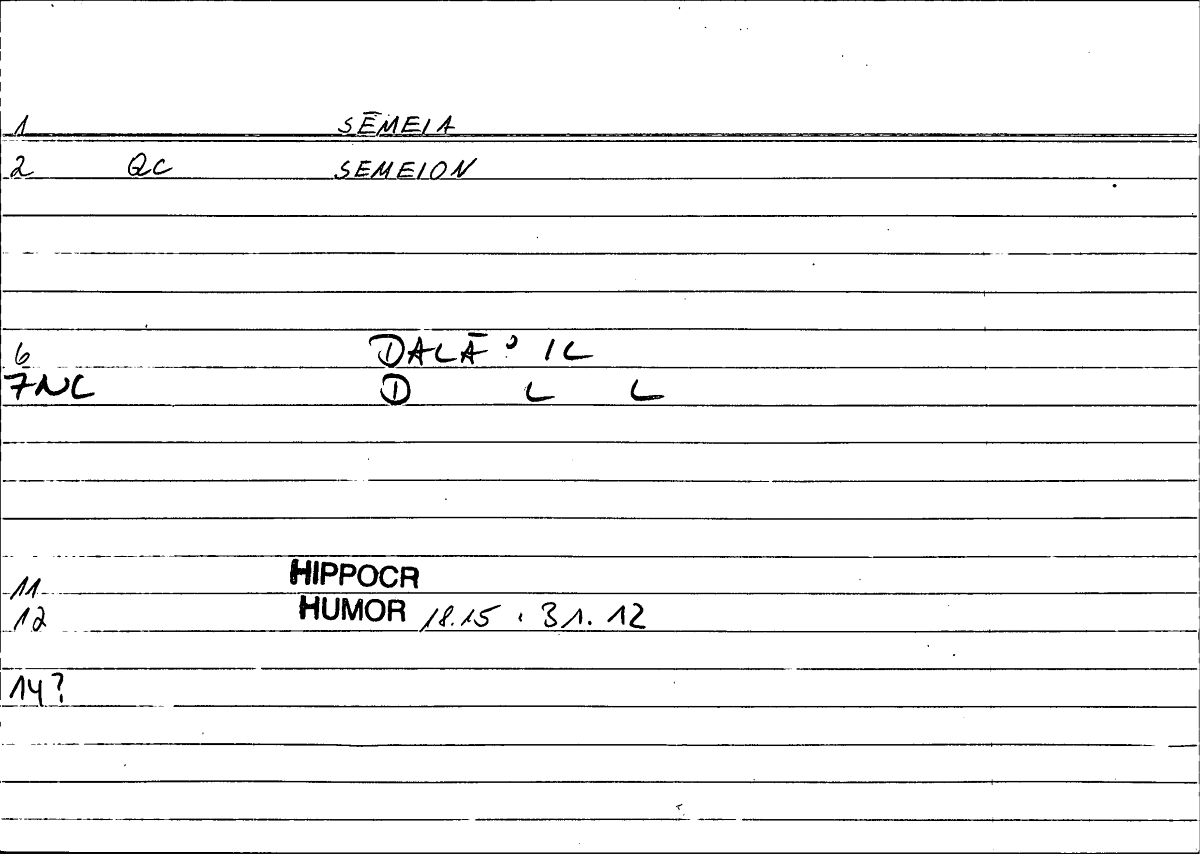 1 SĒMEIA
2 QC SEMEION
6 DALĀʾIL
7NC D L L
11 HIPPOCR
12 HUMOR 18.15 , 31. 12
14?